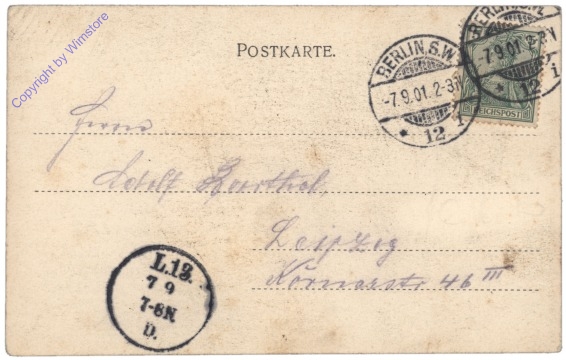 Copyright by Wimstore
POSTKARTE.
BERLIN, S.W.
-7.9.01.2-3N
* 12 i
BERLIN, S.W.
-7.9.01.2-3N
* 12 i
REICHSPOST
Herrn
Adolf Barthel,
Leipzig
Körnerstr 46 III
L.13.
7 9
7-8N.
D.